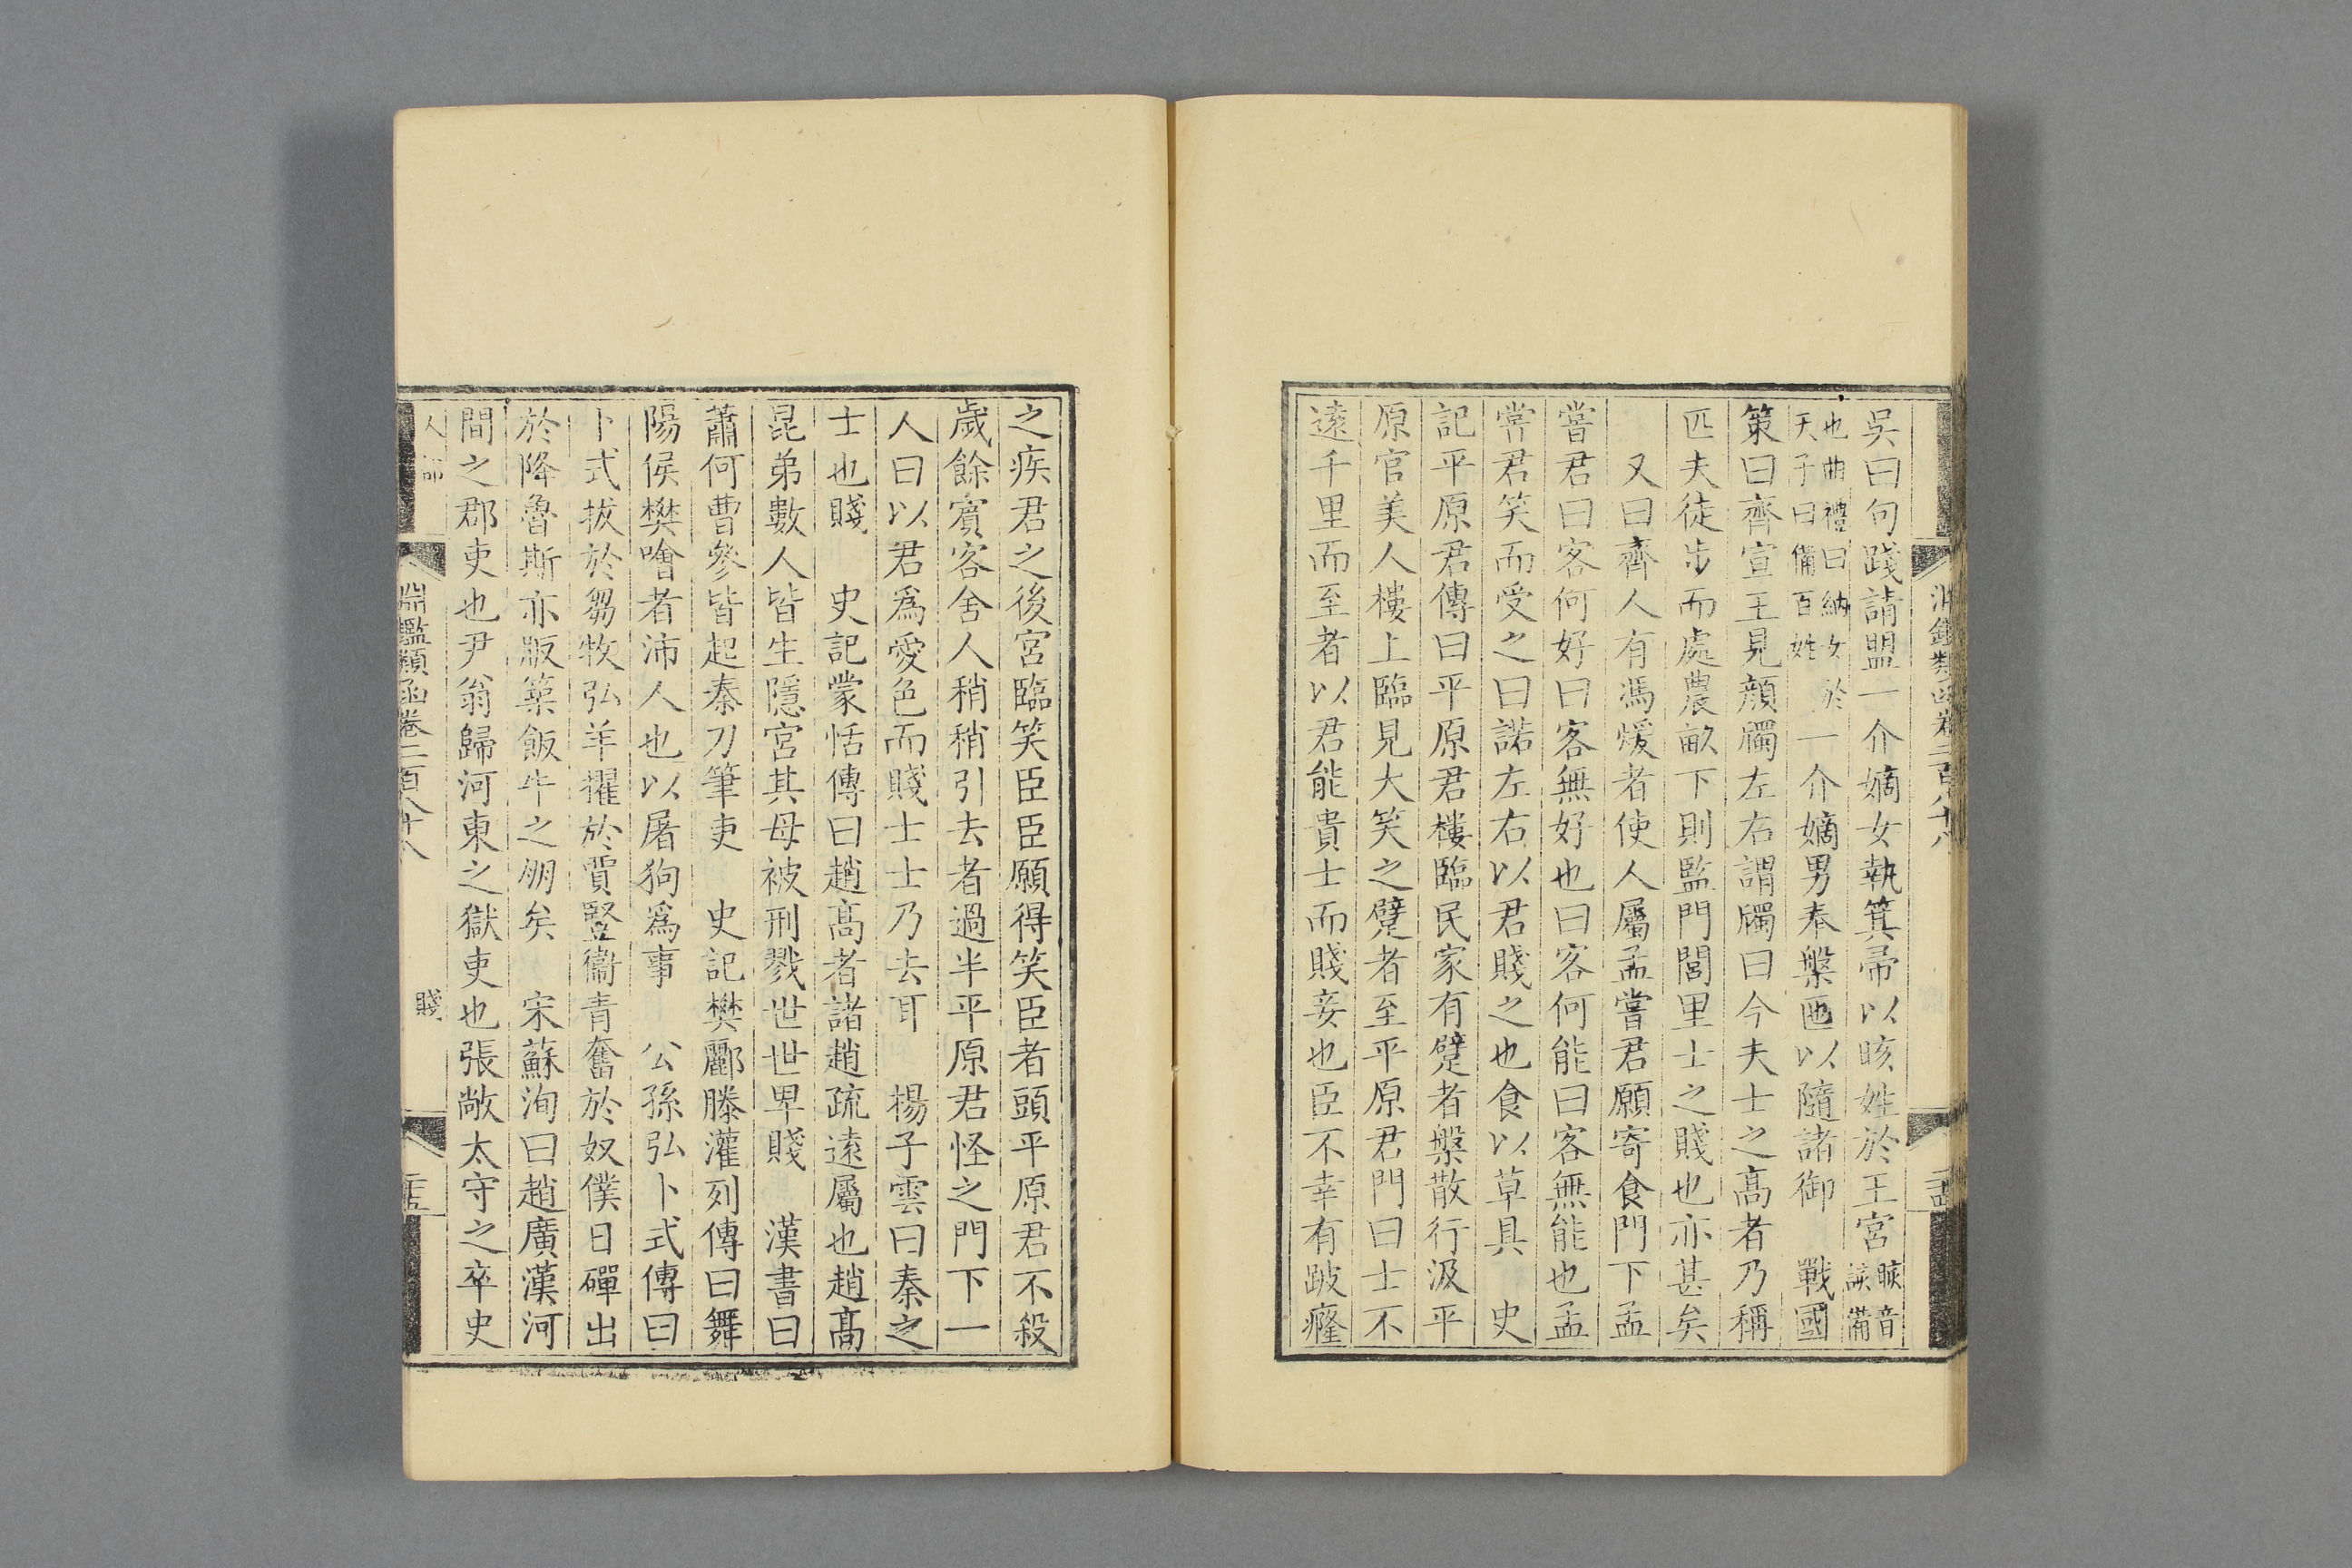 吳曰句踐請盟一介嫡女執箕帚以晐姓於王宮晐音該備
也曲禮曰納女於天子曰備百姓一介嫡男奉槃匜以隨諸御　戰國
策曰齊宣王見顏斶左右謂斶曰今夫士之高者乃稱
匹夫徒步而處農畝下則監門閭里士之賤也亦甚矣
又曰齊人有馮煖者使人屬孟嘗君願寄食門下孟
嘗君曰客何好曰客無好也曰客何能曰客無能也孟
嘗君笑而受之曰諾左右以君賤之也食以草具　史
記平原君傳曰平原君樓臨民家有躄者槃散行汲平
原官美人樓上臨見大笑之躄者至平原君門曰士不
遠千里而至者以君能貴士而賤妾也臣不幸有跛癃
之疾君之後宮臨笑臣臣願得笑臣者頭平原君不殺
歲餘賓客舍人稍稍引去者過半平原君怪之門下一
人曰以君爲愛色而賤士士乃去耳　楊子雲曰秦之
士也賤　史記蒙恬傳曰趙高者諸趙疏遠屬也趙高
昆弟數人皆生隱宮其母被刑戮世世卑賤　漢書曰
蕭何曹參皆起秦刀筆吏　史記樊酈滕灌列傳曰舞
陽侯樊噲者沛人也以屠狗爲事　公孫弘卜式傳曰
卜式拔於芻牧弘羊擢於賈豎衞青奮於奴僕日磾出
於降魯斯亦版築飯牛之朋矣　宋蘇洵曰趙廣漢河
間之郡吏也尹翁歸河東之獄吏也張敞太守之卒史
人部　淵鑑類函卷二百八十八　賤　二十五